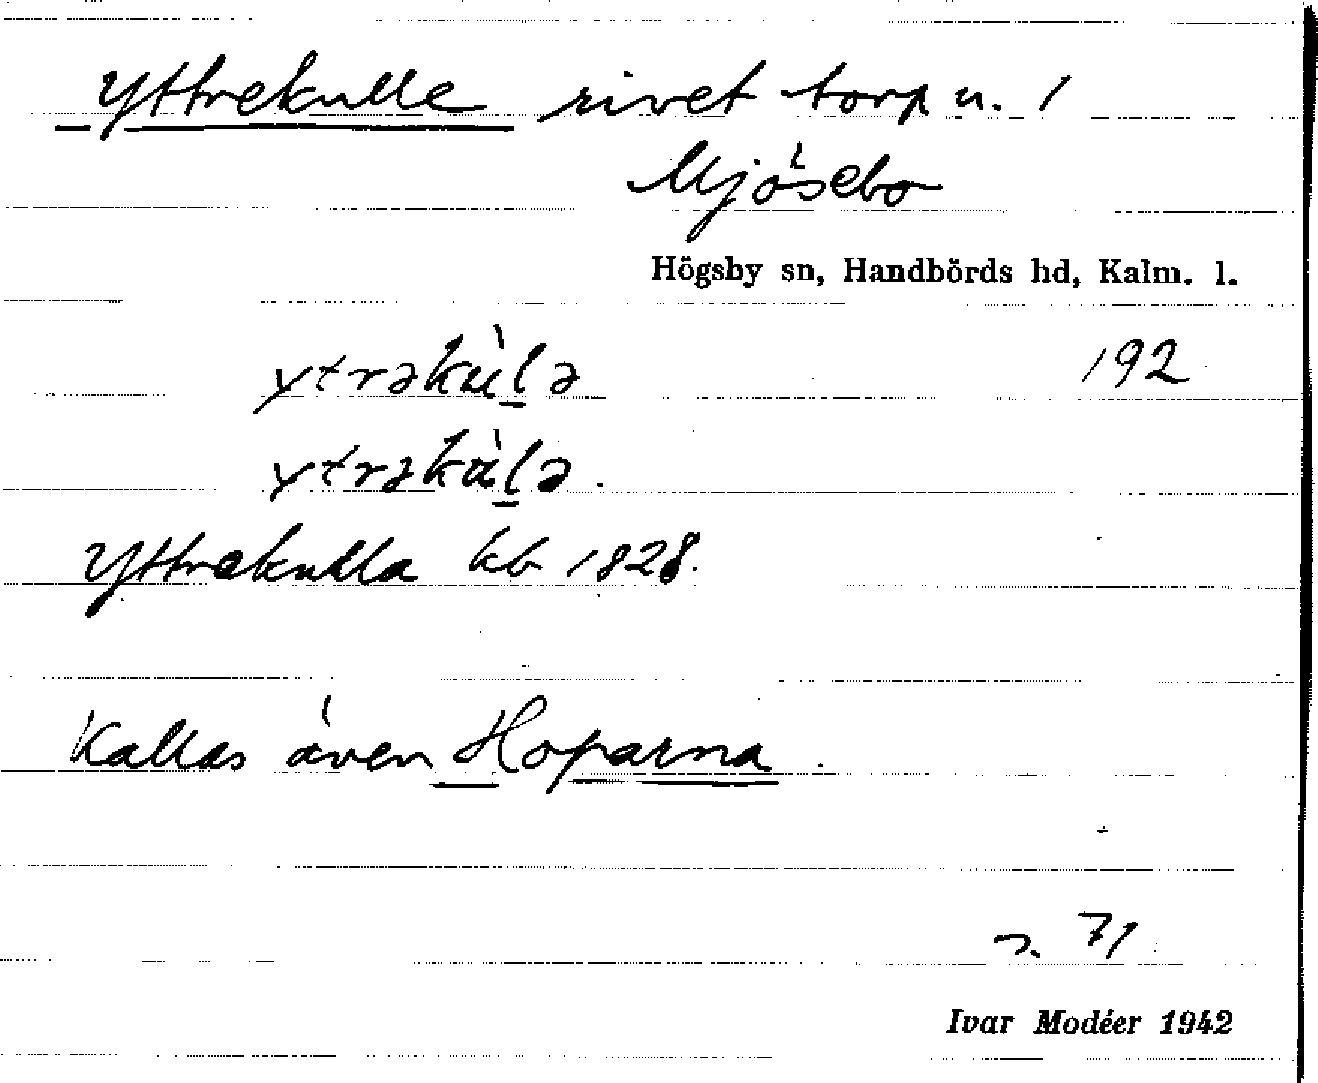 Yttrekulle rivet torp u. 1
Mjösebo
Högsby sn, Handbörds hd, Kalm. l.
ytrəkùl̲ə 192
ytrəkùl̲ə.
Yttrekulla kb 1828.
Kallas även Hoparna.
s. 71
Ivar Modéer 1942